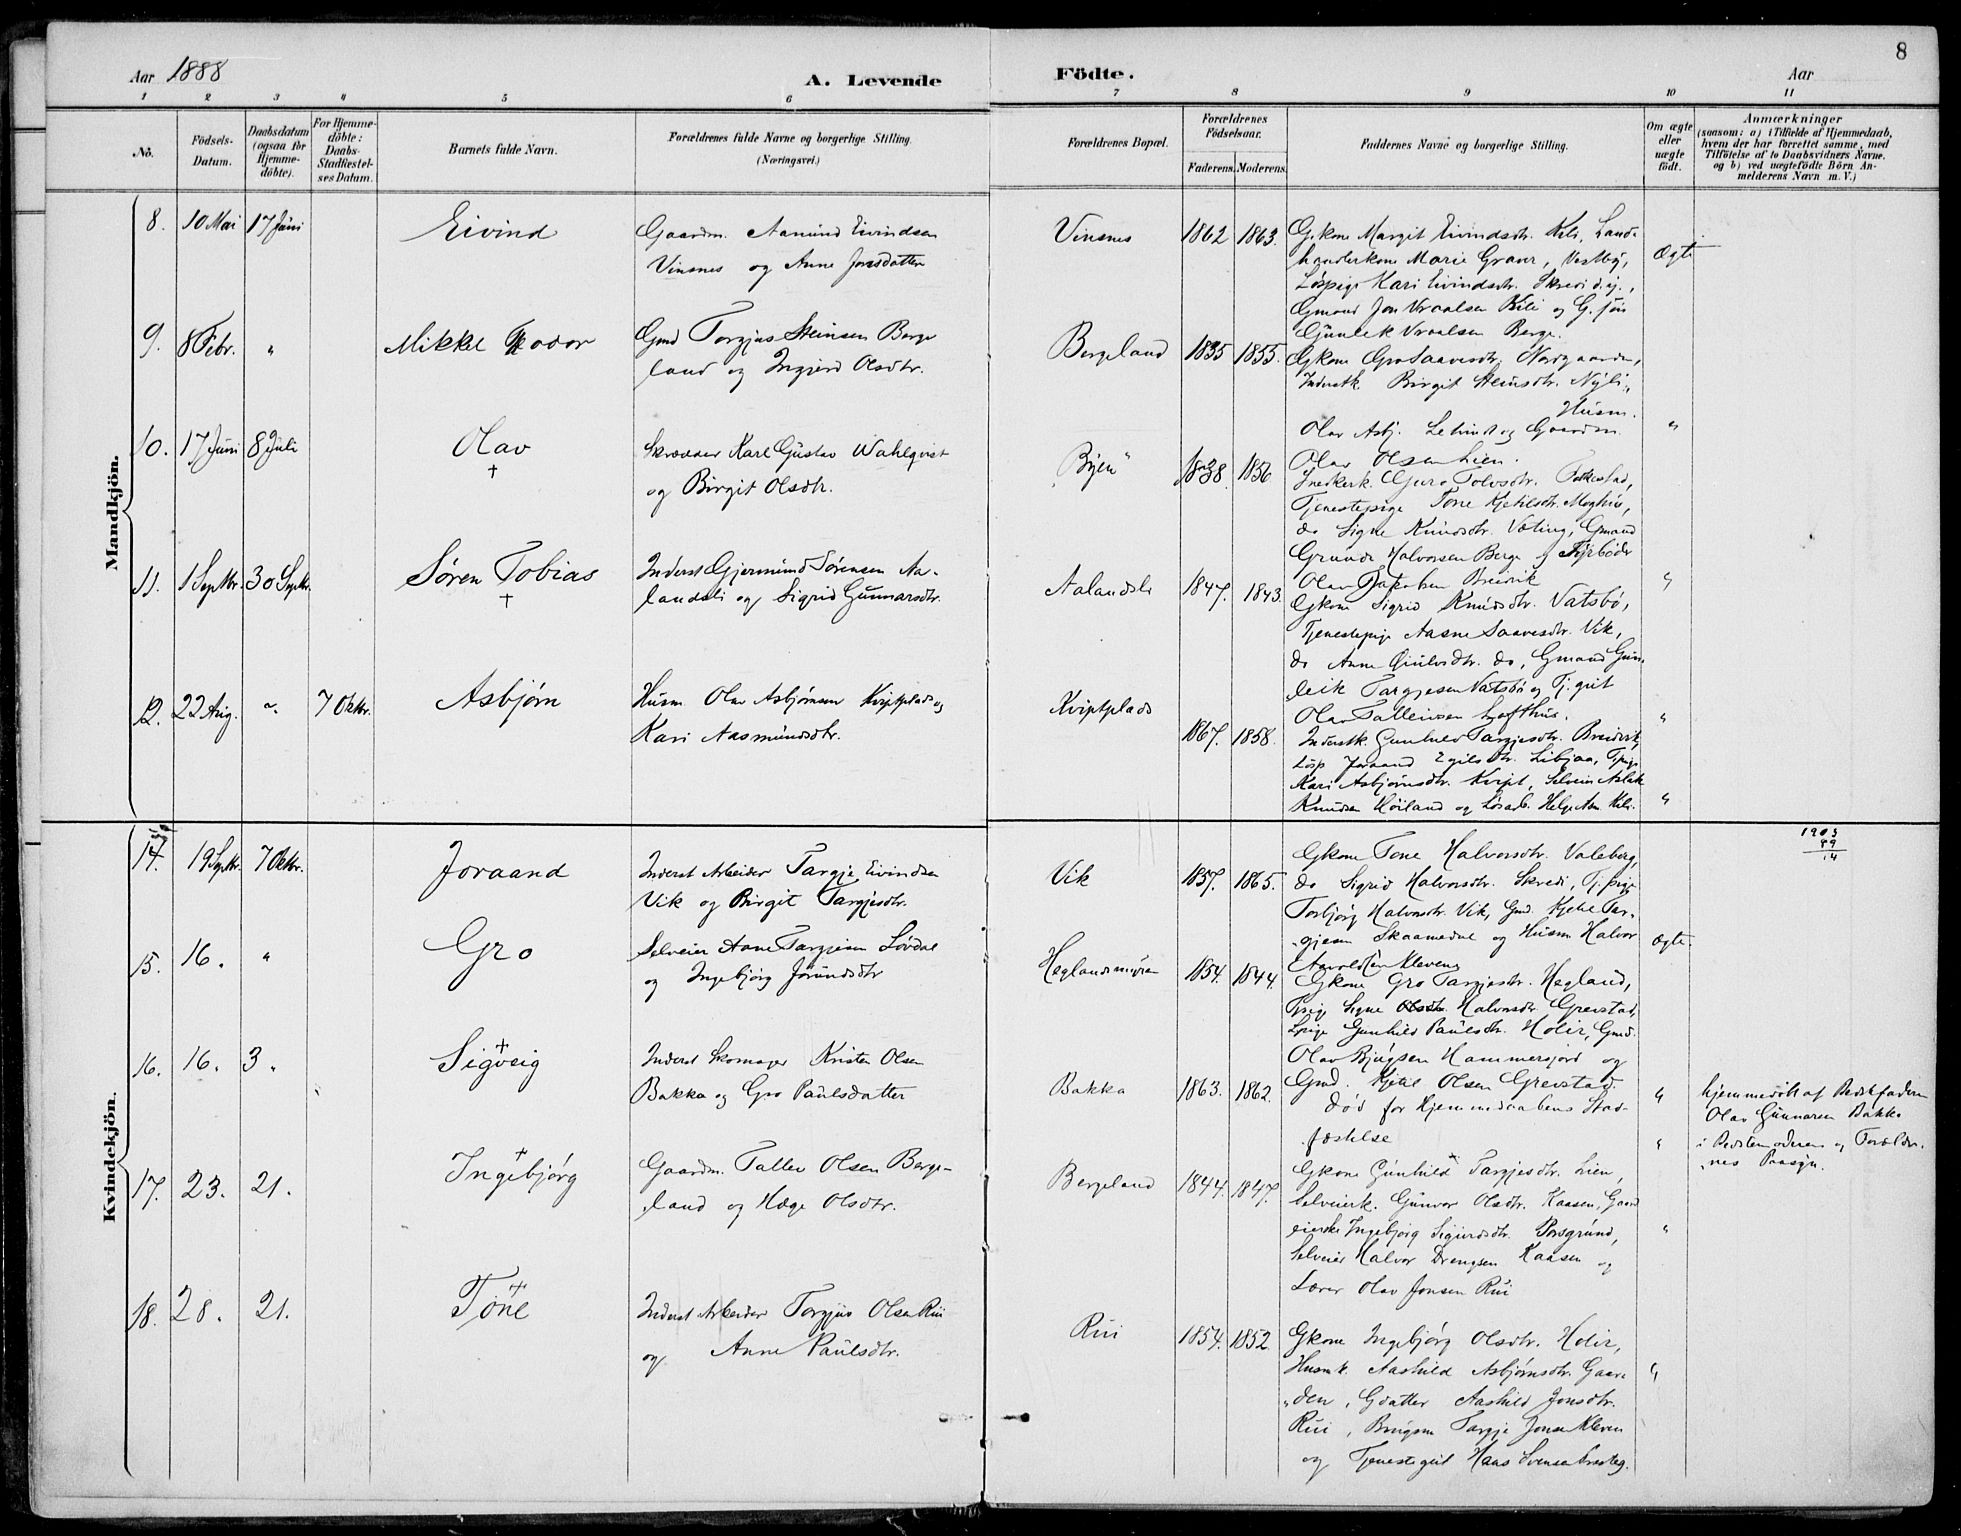 8
Aar 1888
A. Levende
Födte.
Aar
1 2 3 4 5 6 7 8 9 10 11
No.
Födsels-Datum.
Daabsdatum (ogsaa for Hjemmedöbte).
For Hjemmedöbte: Daabs-Stadfæstelses Datum.
Barnets fulde Navn.
Forældrenes fulde Navne og borgerlige Stilling.
(Næringsvei.)
Forældrenes Bopæl.
Forældrenes Födselsaar.
Faderens. Moderens.
Faddernes Navne og borgerlige Stilling.
Om ægte eller uægte födt.
Anmærkninger
(saasom: a) i Tilfælde af Hjemmedaab,
hvem der har forrettet samme, med
Tilföielse af to Daabsvidners Navne.
og b) ved uægtefödte Börn Anmelderens Navn m. V.)
Mandkjön.
8. 10 Mai 17 Juni Eivind
Gaardm. Aamund Eivindsen
Vinsnes og Anne Jonsdatter
Vinsnes 1862 1863.
G.kone Margit Eivindsdtr. Kili, Land-
handlerkone Marie Graver, Vestby,
Løspige Kari Eivindsdtr. Skredi
Gmand Jon Vraalsen Kili og G.søn
Gunlek Vraalsen Berge.
Ægte
9. 8 Febr. " Mikkel
Gmd Torgjus Steinsen Berge
land og Ingjerd Olsdtr.
Bergeland 1835 1855.
Gkone Gro Saavesdtr. Nordgaarden,
Inderstk Birgit Steinsdtr. Nyli,
Husm.
Olav Asbj. og Gaardm.
Olav Olsen Lien.
"
10. 17 Juni 8 Juli Olav
†
Skrædder Karl Gustav Wahlqvist
og Birgit Olsdtr.
"Byen" 1838 1856
Guro Tolvsdtr. Folkestad,
Tjenestepige Tone Kjetilsdtr. Moghus,
do Signe Knudsdtr. Væting, Gmand
Halvorsen Berge og
Olav Jakobsen Breivik
"
11. 1 Septbr. 30 Septbr. Søren Tobias
†
Inderst Gjermund Sørensen Aa-
landsli og Sigrid Gunnarsdtr.
Aalandsli 1847. 1843.
Gkone Sigrid Knudsdtr. Vatsbø,
Tjenestepige Aasne Saavesdtr. Vik,
do Anne do, Gmand Gun-
leik Targjesen Vatsbø og Tj.gut
Olav Talleivsen Lofthus.
"
12. 22 Aug. " 7 Oktbr. Asbjørn
Husm Olav Asbjørnsen Kviptplads og
Kari Aasmundsdtr.
Kviptplads
1867. 1858.
Inderstk. Gunhild Targjesdtr. Breidvik,
Løsp Joraand Egilsdtr. Libjaa, Tpige
Kari Asbjørnsdtr. Kvipt, Selveier Aslak
Knudsen Høiland og Løsarb. Helge Aam. Kili.
"
Kvindekjön.
1903
89
14
14. 19 Septbr. 7 Oktbr. Joraand
Inderst Arbeider Targje Eivindsen
Vik og Birgit Targjesdtr.
Vik 1857. 1865.
Gkone Tone Halvorsdtr. Valeberg,
do Sigrid Halvorsdtr. Skredi, Tj.pige
Torbjørg Halvorsdtr. Vik, Gmd. Kjetil Tar-
gjesen Skaamedal og Husm Halvor
Klevens
Ægte.
15. 16. " Gro
Selveier Aane Targjesen Løvdal
og Ingebjørg Jorundsdtr
Heglandsmyren 1854. 1844.
Gkone Gro Targjesdtr. Hegland,
Tpige Signe Halvorsdtr Grevstad,
Lpige Gunhild Paulsdtr. Holir, Gmd.
Olav Bjugsen Hammersjord og
Gmd. Kjetil Olsen Grevstad.
16. 16. 3 " Sigveig
†
Inderst Skomager Kristen Olsen
Bakka og Gro Paulsdatter
Bakka 1863. 1862.
død før Hjemmedaabens Stad-
fæstelse
"
hjemmedøbt af Bedstefaderen
Olav Gunnarsen Bakka
i Bedstemoderens og Forældre-
nes Paasyn.
17. 23. 21. Ingebjørg
†
Gaardm. Tallev Olsen Berge-
land og Hæge Olsdtr.
Bergeland 1844. 1847.
Gkone Gunhild Targjesdtr. Lien,
Selveierk. Gunvor Olsdtr. Kaasen, Gaard
eierske Ingebjørg Sigurdsdtr. Porsgrund,
Selveier Halvor Drengsen Kaasen og
Lærer Olav Jonsen Rui
"
18. 28. 21. Tone
†
Inderst Arbeider Torgjus Olsen Rui
og Anne Paulsdtr.
Rui 1854. 1852.
Gkone Ingebjørg Olsdtr. Holir,
Husmk. Aashild Asbjørnsdtr. Gaar-
den, Gdatter Aashild Jonsdtr.
Rui, Brugsm Targje Jonsen Kleven
og Tjenestegut Hans Svensen
"